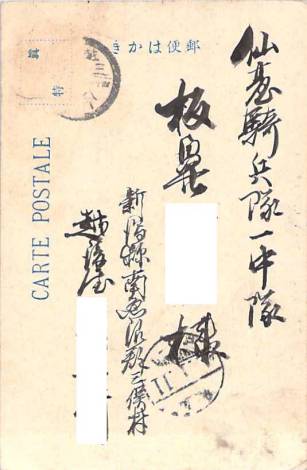 郵便はかき
CARTE POSTALE
仙臺騎兵隊一中隊
板鼻
様
新潟縣南魚沼郡三俣村
越後屋